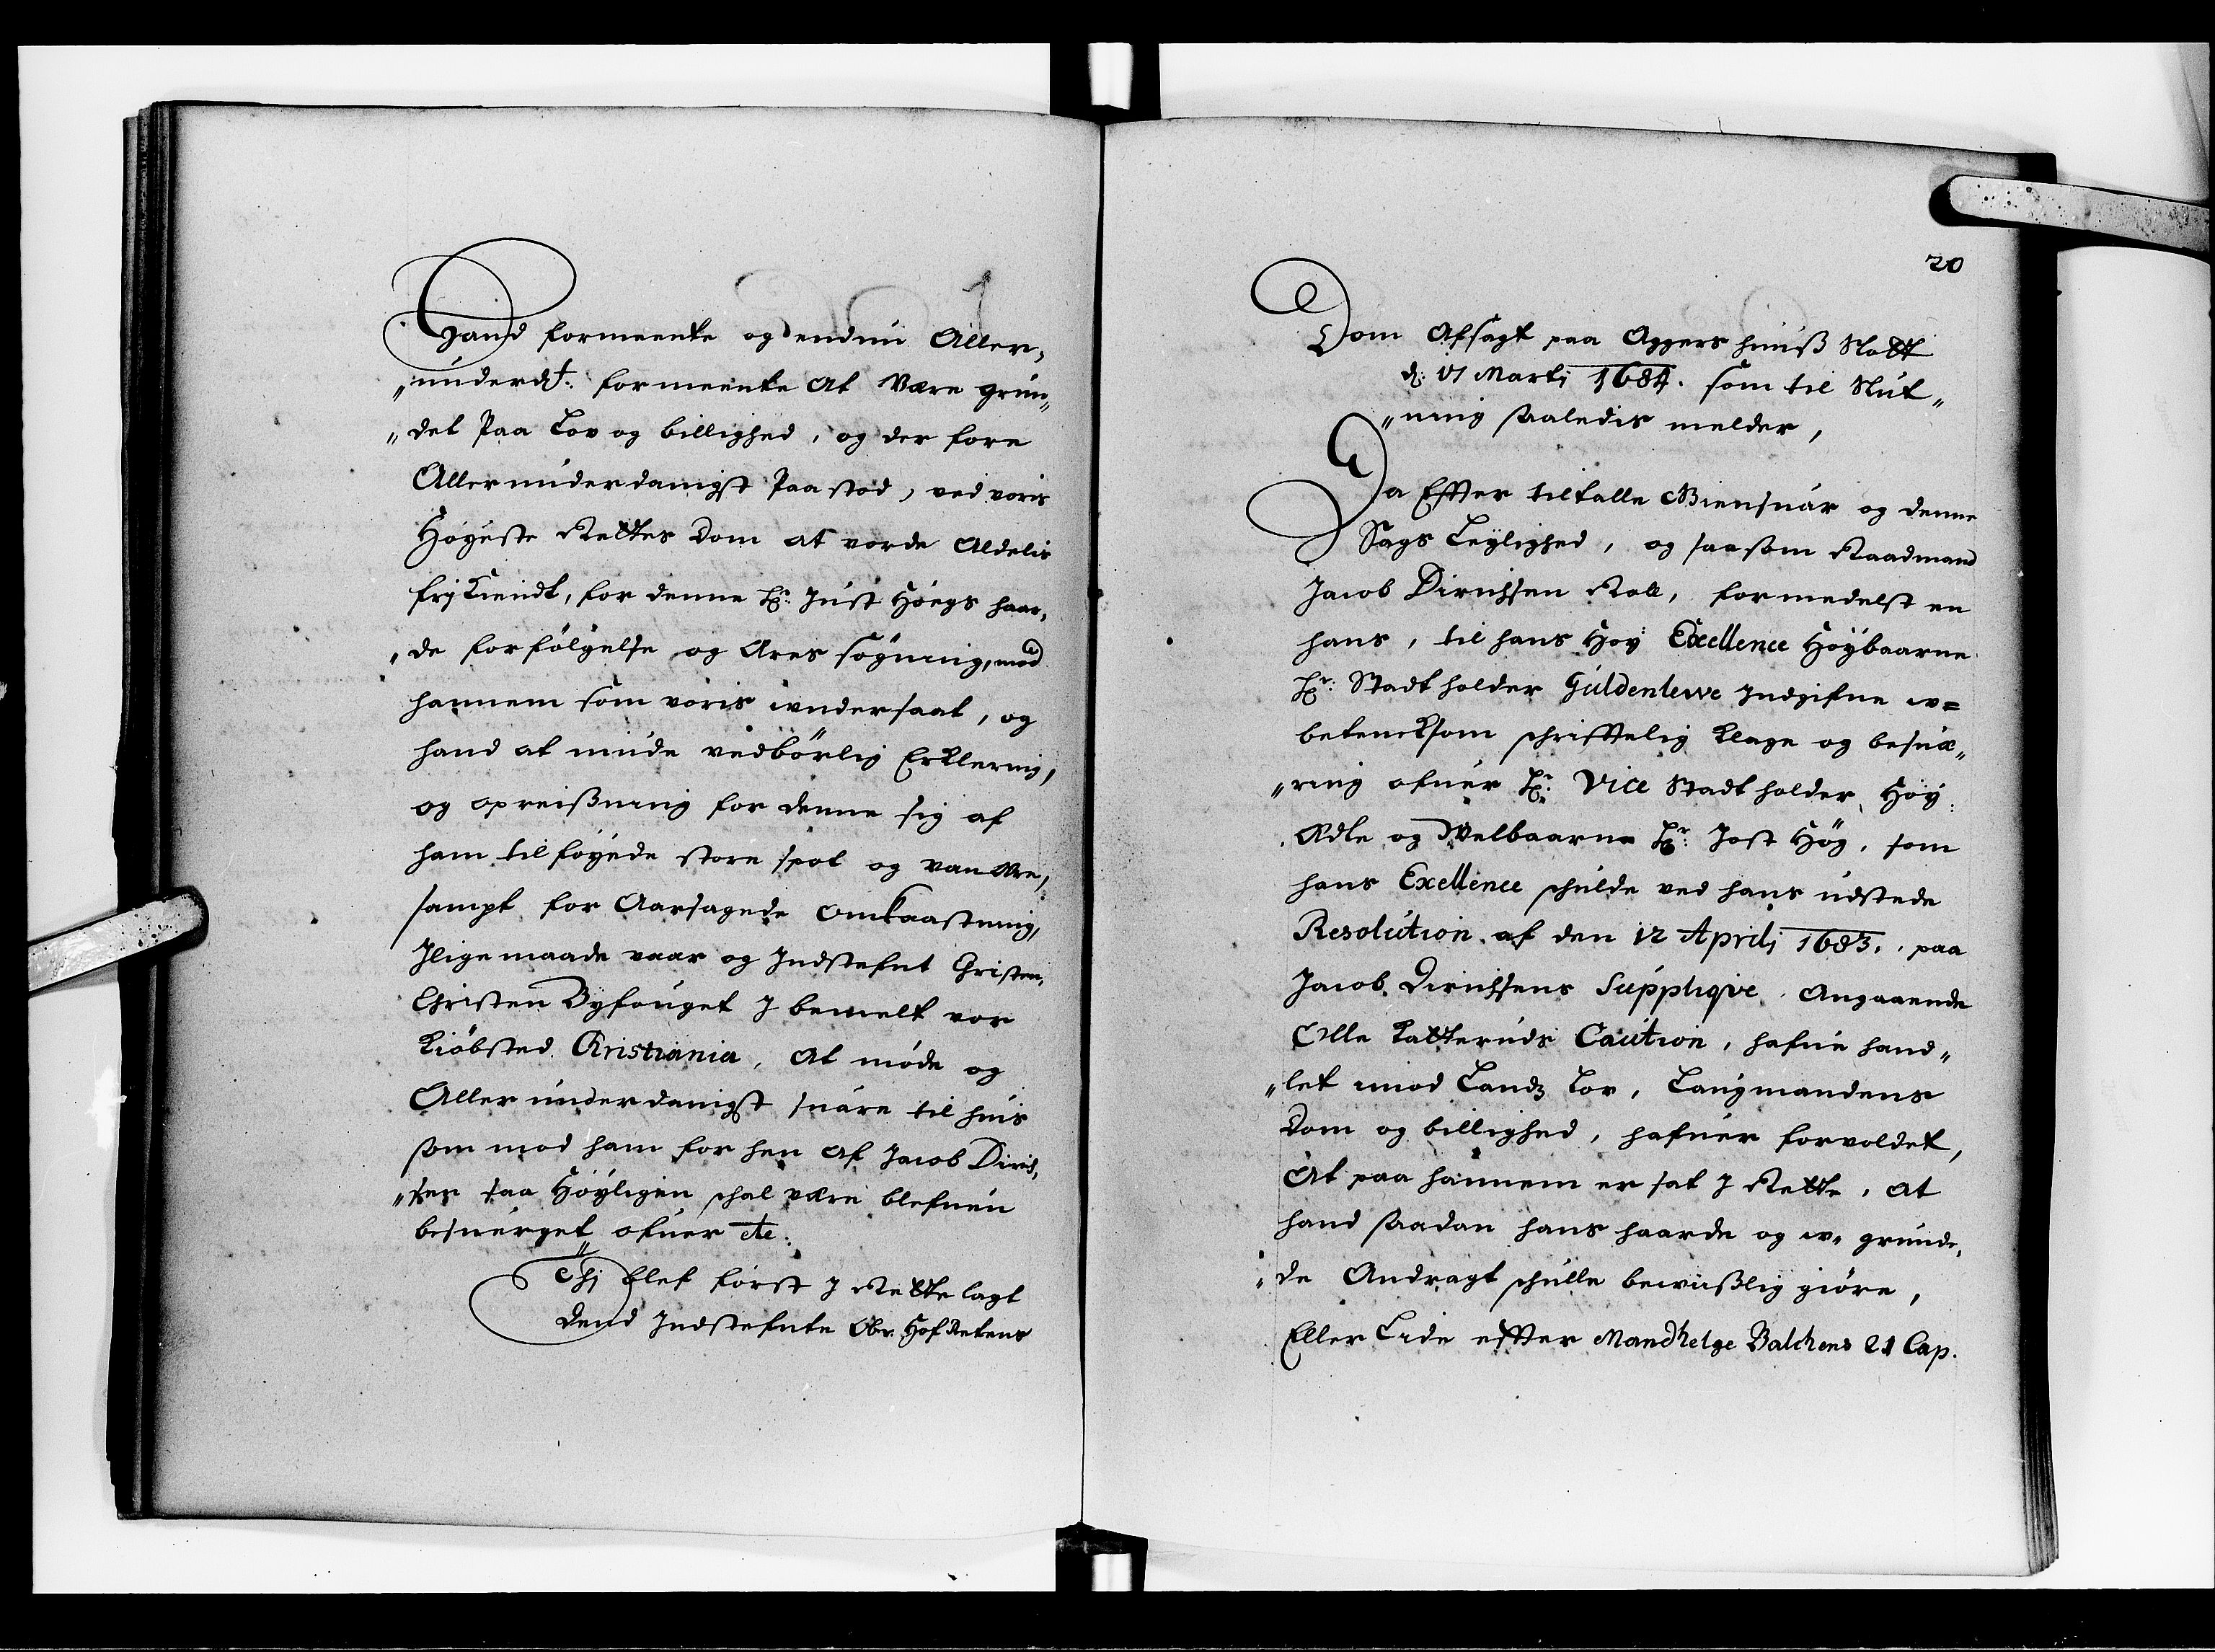 Hand formeente og endnu Aller„
„underdt: formeente at være grun„
„det Paa Lov og billighed, og der fore
Aller underdanigst Paa stod, ved voris
Høyeste Rettes Dom at vorde Aldelis
frj Kiendt, for denne Hr: Just Høegs haar„
„de forfölgelse og Æres søgning, mod
hannem som voris undersaat, og
hand at niude vedbörlig Erklering,
og opreißning for denne sig af
ham tilføyede store spot og van Ære,
sampt for Aarsagede Omkaastning,
Jlige maade vaar og Jndstefnt Christen,
Christen Byfouget J bemelt vor
Kiöbsted Christiania, At møde og
Aller underdanigst suare til huis
som mod ham for hen af Jacob Dirich„
„sen saa Høyligen schal være blefuen
besuerget ofuer etc:
Thj blef først J Rette lagt
Dend Jndstefnte Obr: Hof Retens
20
Dom Afsagt paa Aggers huuß Slott
d: 17 Martj 1684. som til Slut„
„ning saaledis melder,
Da Effter tilfalle Giensuar og denne
Sags Leylighed, og saasom Raadmand
Jacob Dirichsen Roll, formedelst en
hans, til hans Høy: Exellence Høybaarne
Hr: Stadtholder Güldenlewe Jndgifne u=
betencksom schrifftelig Klage og besuæ„
„ring ofuer Hr: Vice Stadtholder, Høy
Ædle og Welbaarne Hr: Jost Høg, som
hans Exellence schulde ved hans udstede
Resolution af den 12 Aprilj 1683., paa
Jacob Dirichsens Supplique, Angaaende
Olle Katteruds Caution, hafue hand„
„let imod Landz Lov, Laugmandens
Dom og billighed, hafuer forvoldet,
At paa hannem er sat J Rette, at
hand saadan hans haarde og u„ grunde„
„de Andragt schulle bewißlig giøre,
Eller Lide effter Mandhelge Balchens 21 Cap.